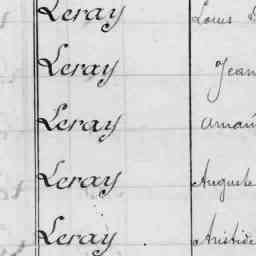 Leray Louis
Leray Jean
Leray
Leray Auguste
Leray Aristide